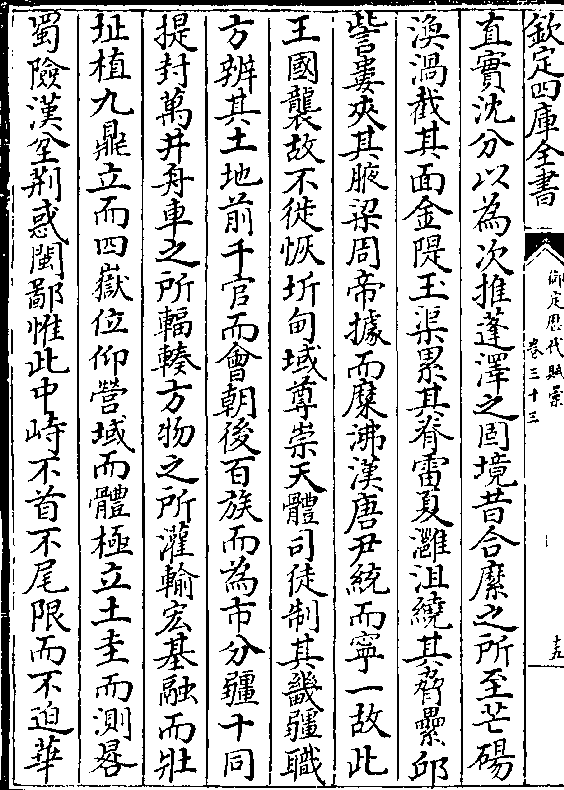 欽定四庫全書
御定歷代賦彙
卷三十三
十五
直實沈分以為次推蓬澤之固境昔合縻之所至芒碭
渙渦截其面金隄玉渠累其脊雷夏灉沮繞其脅壘邱
訾婁夾其腋梁周帝據而糜沸漢唐尹統而寧一故此
王國襲故不徙恢圻甸域尊崇天體司徒制其畿疆職
方辨其土地前千官而會朝後百族而為市分疆十同
提封萬井舟車之所輻輳方物之所灌輸宏基融而壯
址植九鼎立而四嶽位仰營域而體極立土圭而測晷
蜀險漢坌荆惑閩鄙惟此中峙不首不尾限而不迫華